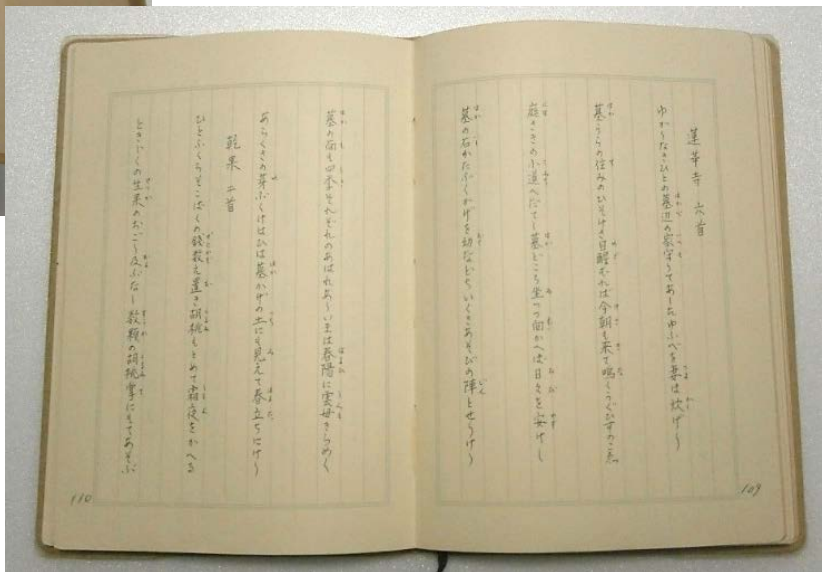 蓮華寺 六首
ゆかりなきひとの墓辺の家守りてあしたゆふべを妻は炊げり
墓うらの住みのひそけさ目醒むれば今朝も来て鳴くうぐひすのこゑ
庭さきの小道へだてし墓どころ坐りつつ向かへば日々を安けし
墓の石かたぶくかげを幼などちいくさあそびの陣とせりけり
109
墓の面も四季それぞれのあはれありいまは春陽に雲母きらめく
あらくさの芽ぶくけはひは墓かげの土にも見えて春立ちにけり
乾果 二首
ひとふくろそこばくの銭数え置き胡桃もとめて霜夜をかへる
ときじくの生果のおごり及ぶなし数顆の胡桃掌にもてあそぶ
110